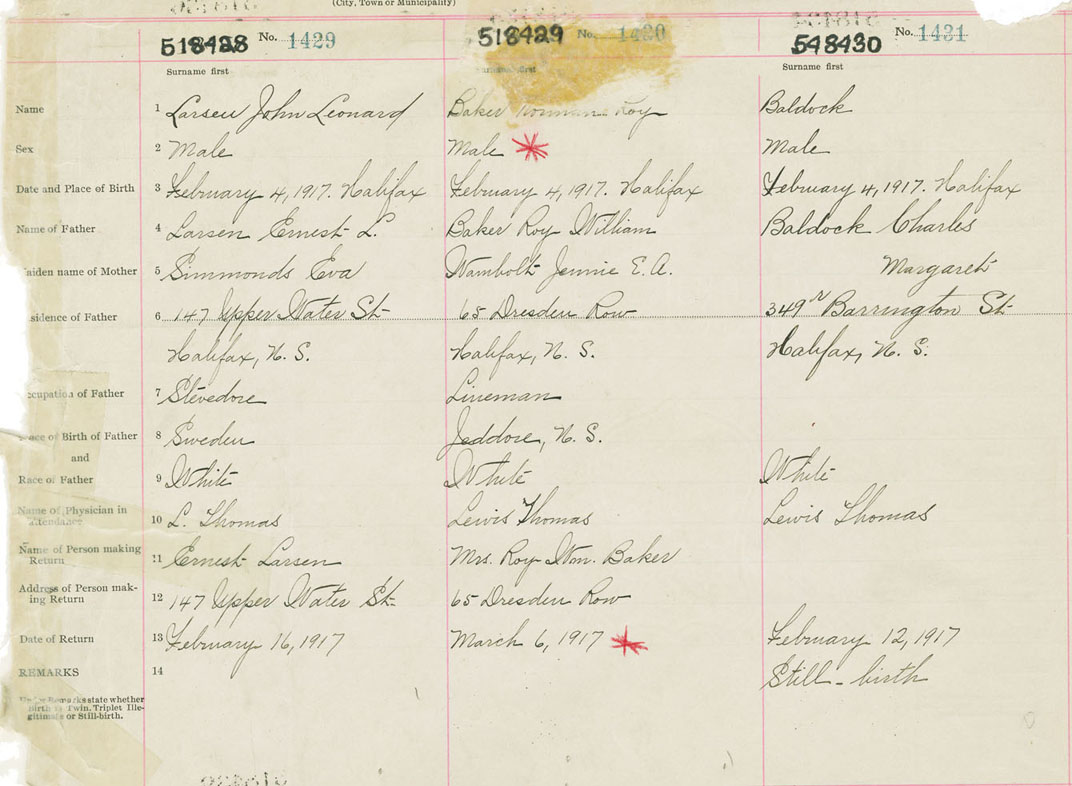 (City, Town or Municipality)
518428 No. 1429 518429 No. 1430 548430 No. 1431
Surname first Surname first Surname first
Name 1 Larsen John Leonard Baker Norman Roy Baldock
Sex 2 Male Male Male
Date and Place of Birth 3 February 4, 1917. Halifax February 4, 1917. Halifax February 4, 1917. Halifax
Name of Father 4 Larsen Ernest L. Baker Roy William Baldock Charles
aiden name of Mother 5 Simmonds Eva Wambolt Jennie E. A. Margaret
sidence of Father 6 147 Upper Water St. 65 Dresden Row 349 Barrington St.
Halifax, N. S. Halifax, N. S. Halifax, N. S.
ccupation of Father 7 Stevedore Lineman
ace of Birth of Father 8 Sweden Jeddore, N. S.
and
Race of Father 9 White White White
Name of Physician in
attendance 10 L. Thomas Lewis Thomas Lewis Thomas
Name of Person making
Return 11 Ernest Larsen Mrs. Roy Wm. Baker
Address of Person mak-
ing Return 12 147 Upper Water St. 65 Dresden Row
Date of Return 13 February 16, 1917 March 6, 1917 February 12, 1917
REMARKS 14 Still-birth
Under Remarks state whether
Birth is Twin, Triplet Ille-
gitimate or Still-birth.